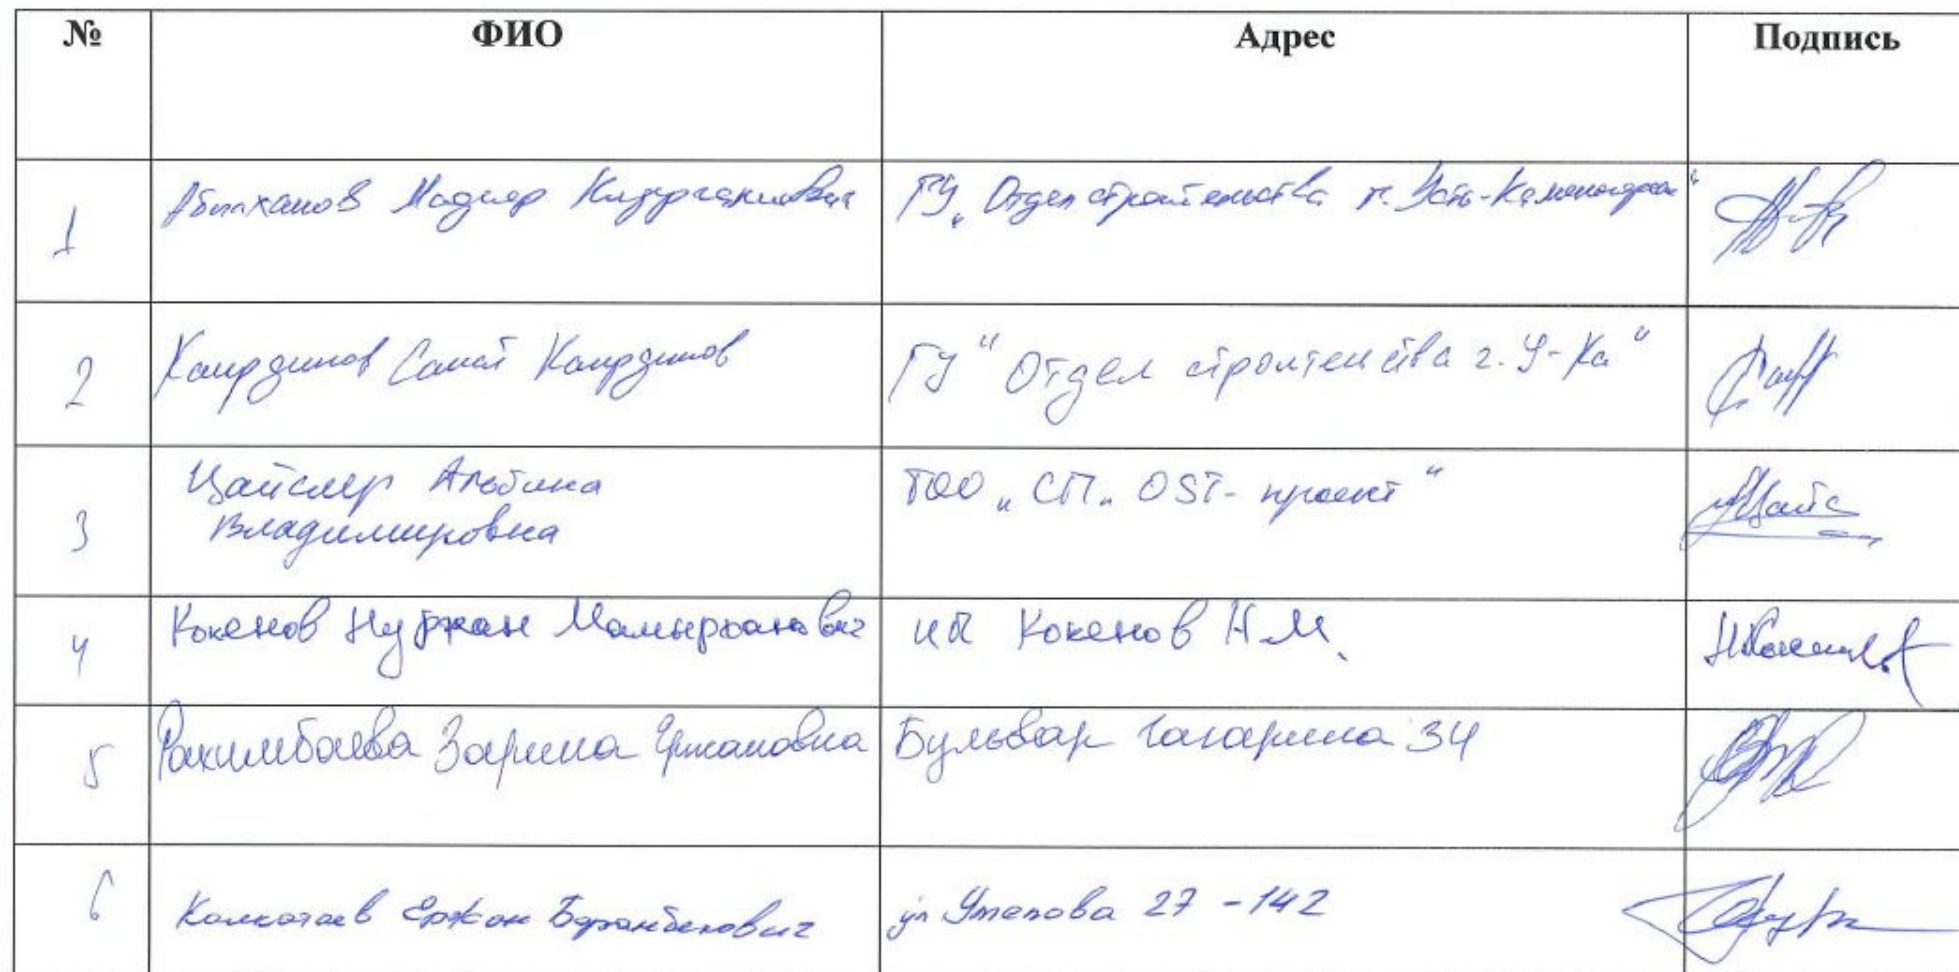 № ФИО Адрес Подпись
1 Абылханов Мадияр ГУ "Отдел строительства г. Усть-Каменогорска"
2 Каирдинов Самат Каирдинов ГУ "Отдел строительства г. У-Ка"
3 Цайслер Альбина ТОО "СП "OST-проект"
Владимировна
4 Кокенов Нуржан Мамырханович ИП Кокенов Н.М.
5 Рахимбаева Зарина Ермановна Бульвар Гагарина 34
6 Калкатаев Ержан Баранбекович ул Утепова 27-142